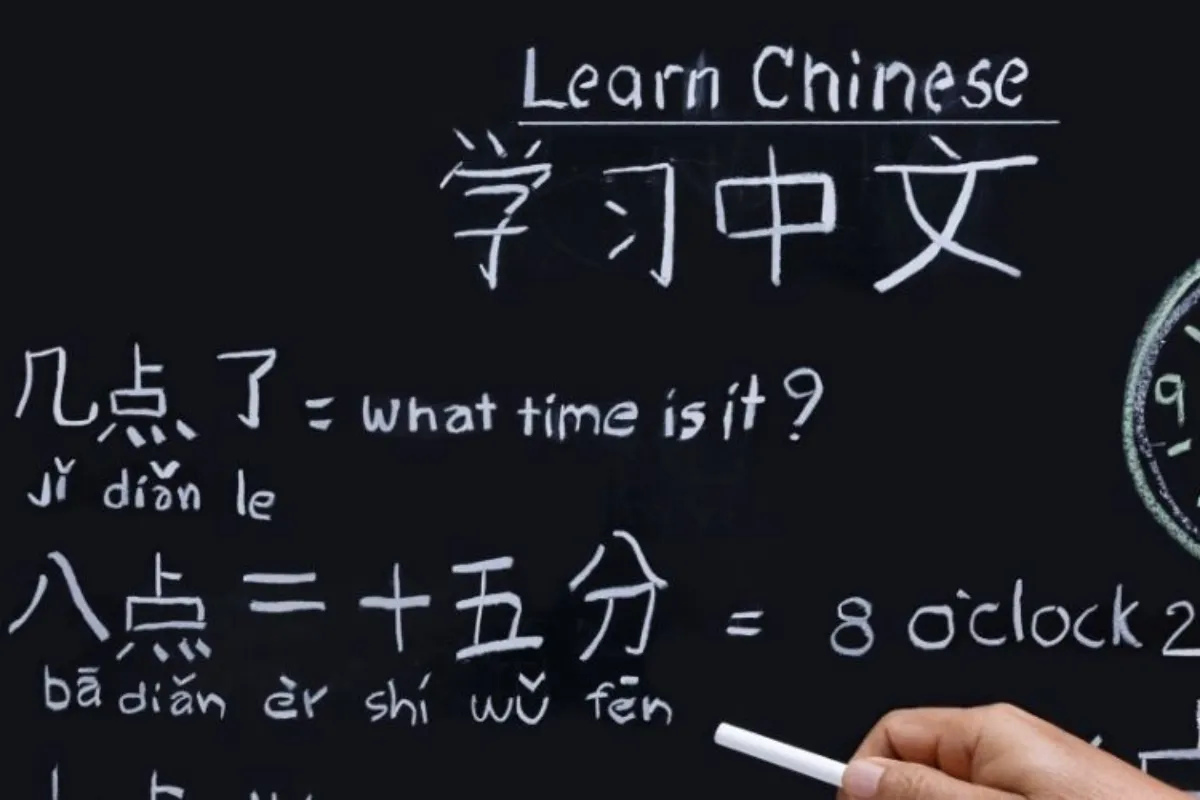 Learn Chinese
学习中文
几点了 = what time is it?
jǐ diǎn le
八点二十五分 = 8 o'clock 2
bā diǎn èr shí wǔ fēn
9